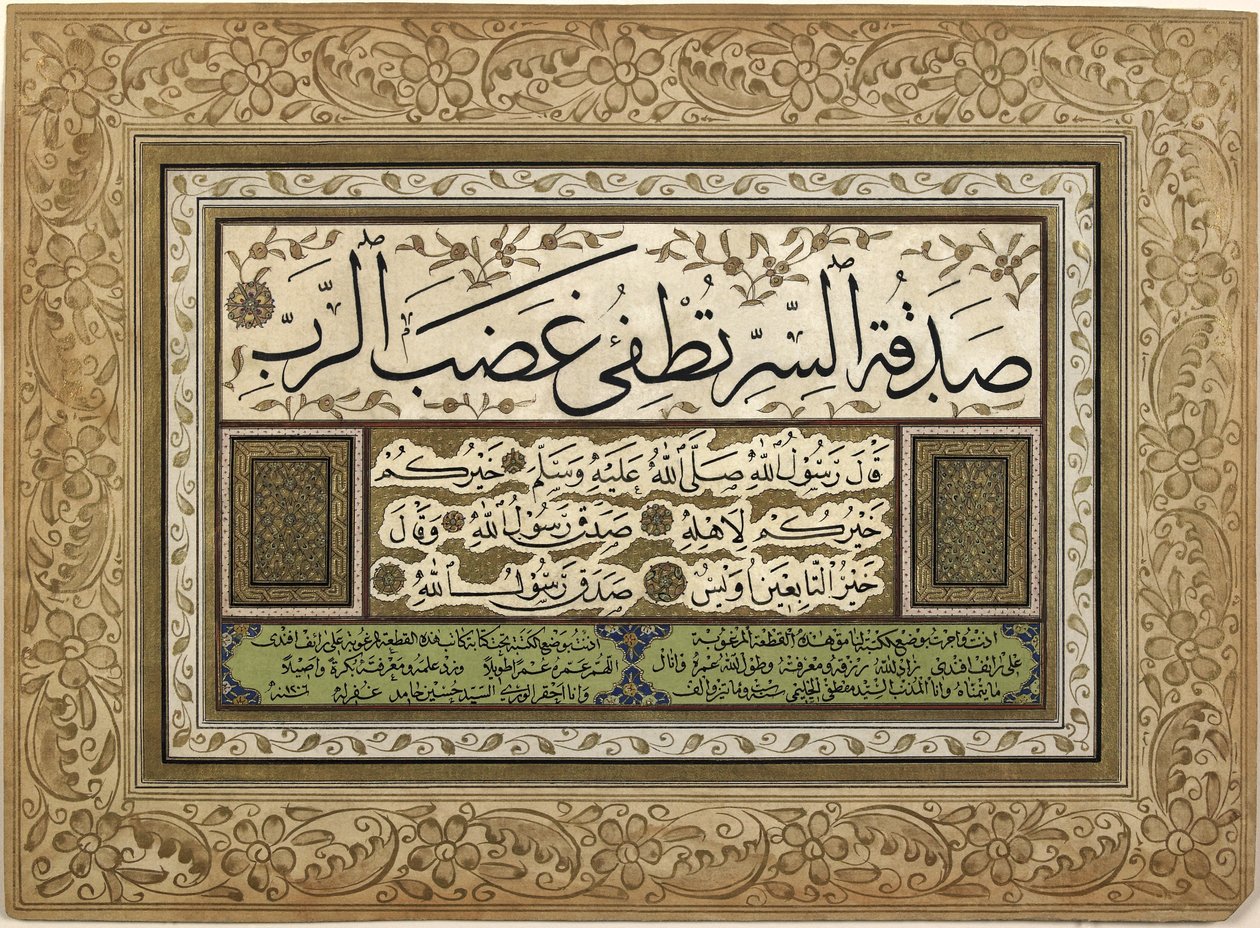 صَدَقَةُ السِّرِّ تُطْفِئُ غَضَبَ الرَّبِّ
قَالَ رَسُولُ اللّٰهِ صَلَّى اللّٰهُ عَلَيْهِ وَسَلَّمَ خَيْرُكُمْ
خَيْرُكُمْ لِاَهْلِهِ صَدَقَ رَسُولُ اللّٰهِ وَقَالَ
خَيْرُ التَّابِعِينَ اُوَيْسُ صَدَقَ رَسُولُ اللّٰهِ
اذنت واجزت بوضع الكتبة لنامق هذه القطعة المرغوبة
على رائف افندى زاد الله رزقه ومعرفته وطول الله عمره وانال
ما يتمناه وانا المذنب السيد مصطفى الحليمى ست ومائتين والف
اذنت بوضع الكتبة تحت كتابة كاتب هذه القطعة المرغوبة على رائف افندى
اللهم عمره عمرا طويلا وزد علمه ومعرفته بكرة واصيلا
وانا احقر الورى السيد حسين حامد غفر له سنه ١٢٠٦